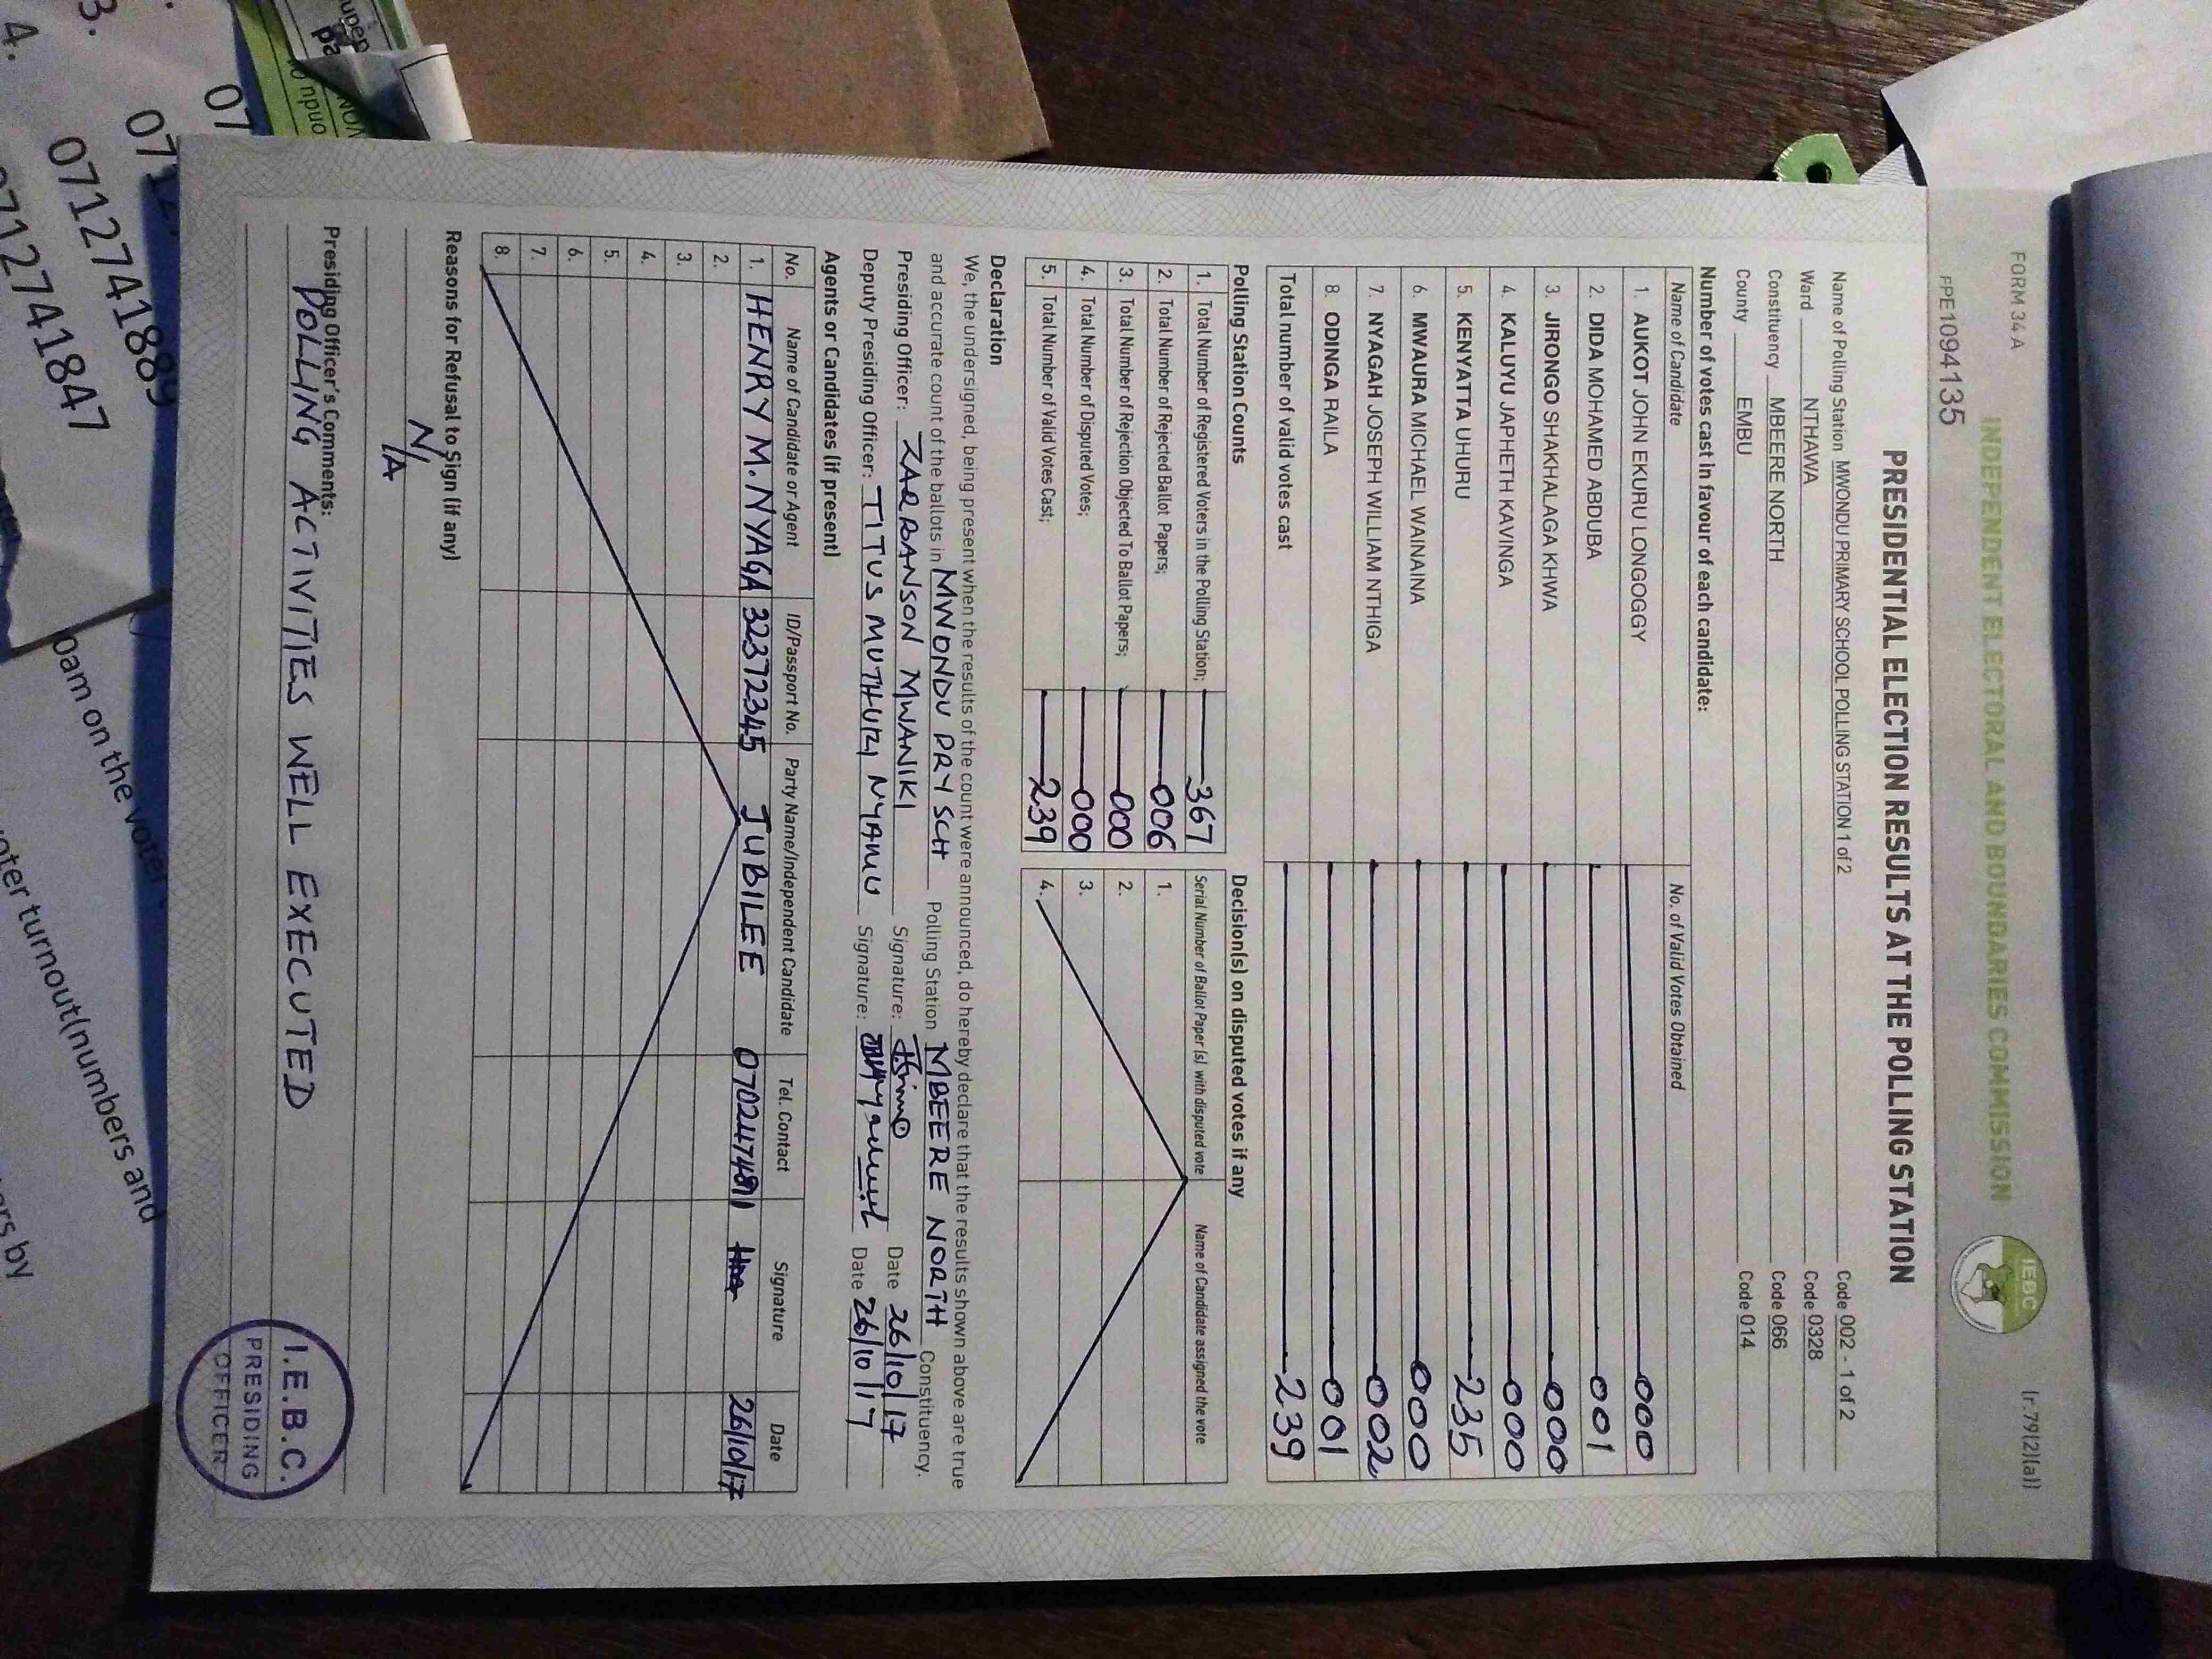 FORM 34A
(r.79(2)(a))
INDEPENDENT ELECTORAL AND BOUNDARIES COMMISSION
IEBC
PE1094135
PRESIDENTIAL ELECTION RESULTS AT THE POLLING STATION
Name of Polling Station MWONDU PRIMARY SCHOOL POLLING STATION 1 of 2 Code 002 - 1 of 2
Ward NTHAWA Code 0328
Constituency MBEERE NORTH Code 066
County EMBU Code 014
Number of votes cast in favour of each candidate:
Name of Candidate No. of Valid Votes Obtained
1. AUKOT JOHN EKURU LONGOGGY 000
2. DIDA MOHAMED ABDUBA 001
3. JIRONGO SHAKHALAGA KHWA 000
4. KALUYU JAPHETH KAVINGA 000
5. KENYATTA UHURU 235
6. MWAURA MICHAEL WAINAINA 000
7. NYAGAH JOSEPH WILLIAM NTHIGA 002
8. ODINGA RAILA 001
Total number of valid votes cast 239
Polling Station Counts
1. Total Number of Registered Voters in the Polling Station; 367
2. Total Number of Rejected Ballot Papers; 006
3. Total Number of Rejection Objected To Ballot Papers; 000
4. Total Number of Disputed Votes; 000
5. Total Number of Valid Votes Cast; 239
Decision(s) on disputed votes if any
Serial Number of Ballot Paper (s) with disputed vote Name of Candidate assigned the vote
1.
2.
3.
4.
Declaration
We, the undersigned, being present when the results of the count were announced, do hereby declare that the results shown above are true
and accurate count of the ballots in MWONDU PRY SCH Polling Station MBEERE NORTH Constituency.
Presiding Officer: MWANIKI Signature: Date 26/10/17
Deputy Presiding Officer: TITUS MUTHURI NYAMU Signature: Date 26/10/17
Agents or Candidates (if present)
No. Name of Candidate or Agent ID/Passport No. Party Name/Independent Candidate Tel. Contact Signature Date
1. HENRY M. NYAGA 32372345 JUBILEE 26/10/17
2.
3.
4.
5.
6.
7.
8.
Reasons for Refusal to Sign (if any)
N/A
Presiding Officer's Comments:
POLLING ACTIVITIES WELL EXECUTED
I.E.B.C.
PRESIDING
OFFICER
3.
4.
07
0712741889
0712741847
oam on the voter
oter turnout(numbers and
ers by